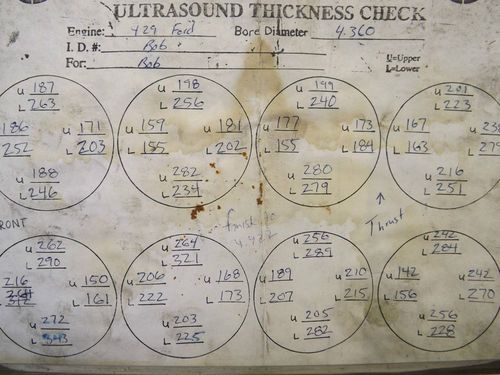 ULTRASOUND THICKNESS CHECK
Engine: 429 Ford Bore Diameter 4.360
I. D. #: Bob
For: Bob
U=Upper
L=Lower
U 187 U 198 U 199 U 201
L 263 L 256 L 240 L 223
186 U 171 U 159 U 181 U 177 U 173 U 167
252 L 203 L 155 L 202 L 155 L 184 L 163 L 279
U 188 U 282 U 280 U 216
L 246 L 234 L 279 L 251
RONT finish to Thrust
4.422
U 262 U 264 U 256 U 242
L 290 L 321 L 289 L 284
216 U 150 U 206 U 168 U 189 U 210 U 142 U 242
L 161 L 222 L 173 L 207 L 215 L 156 L 270
U 272 U 203 U 205 U 256
L L 225 L 282 L 228